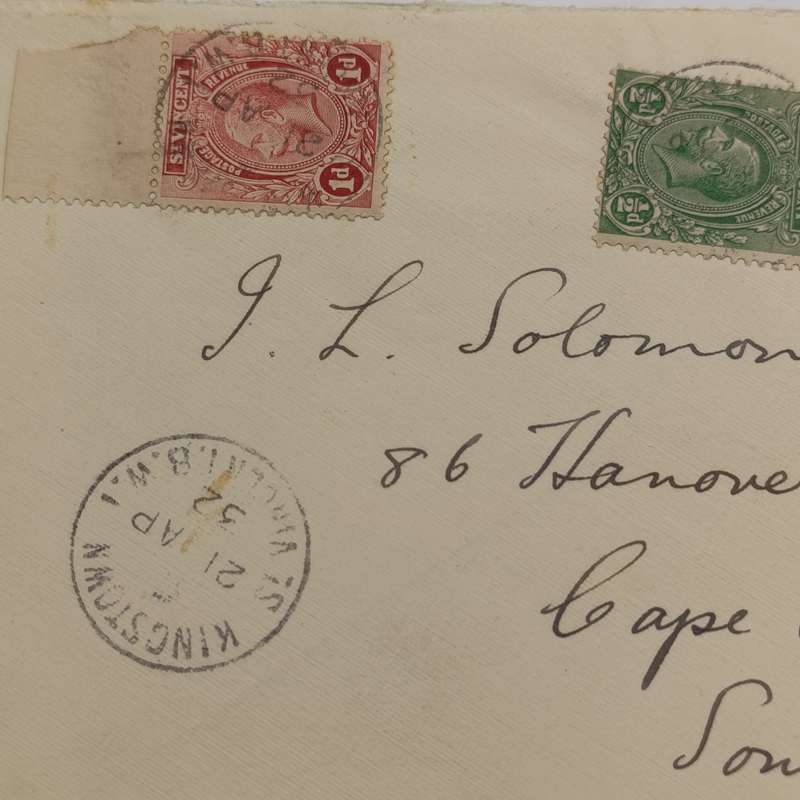 ST VINCENT
POSTAGE
REVENUE
1d
1d
21
AP
½d
½d
POSTAGE
REVENUE
I. L. Solomon
86 Hanove
Cape
Sou
KINGSTOWN
ST VINCENT, B.W.I
21 AP
32